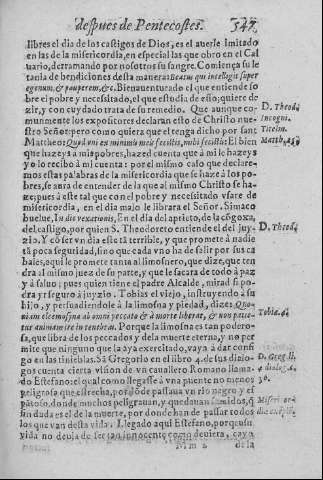 despues de Pentecostes. 347
libres el dia de los castigos de Dios, es el auerle imitado
en las de la misericordia, en especial las que obro en el Cal
uario, derramando por nosotros su sangre. Comiença su le
tania de bendiciones desta manera: Beatus qui intelligit super
egenum, & pauperem, &c. Bienauenturado el que entiende so
bre el pobre y necessitado, el que estudia de eso; quiere de
zir, y con cuydado trata de su remedio. Que aunque co-
munmente los expositores declaran esto de Christo nue-
stro Señor: pero como quiera que el tenga dicho por sant
Mattheo: Quod uni ex minimis meis fecistis, mihi fecistis: El bien
que hazeys a mis pobres, hazed cuenta que à mi le hazeys
y o lo recibo à mi cuenta: por el mismo caso que declare-
mos estas palabras de la misericordia que se haze à los po-
bres, se aura de entender de la que al mismo Christo se ha-
ze; pues à este tal que con el pobre y necessitado vsare de
misericordia, en el dia malo le librara el Señor. Simaco
buelue, In die vexationis, En el dia del aprieto, de la cõgoxa,
del castigo, por quien S. Theodoreto entiende el del juy-
zio. Y cõ ser vn dia este tã terrible, y que promete à nadie
tã poca seguridad, sino que cada vno ha de salir por sus ca
bales, aqui le promete tanta al limosnero, que dize, que ten
dra al mismo juez de su parte, y que le sacara de todo à paz
y à saluo; pues quien tiene el padre Alcalde, mirad si po-
dra yr seguro à juyzio. Tobias el viejo, instruyendo à su
hijo, y persuadiendole à la limosna y piedad, dizes: Quo-
niam eleemosyna ab omni peccato & à morte liberat, & non patie-
tur animam ire in tenebras. Porque la limosna es tan podero-
sa, que libra de los peccados y dela muerte eterna, y no per
mite que ninguno que la aya exercitado, vaya à dar consi
go en las tinieblas. Sã Gregorio en el libro 4. de sus dialo-
gos cuenta cierta vision de vn cauallero Romano llama-
do Estefano: el qual como llegasse à vna puente no menos
peligrosa que estrecha, por dõde passaua vn rio negro y es
pantoso, donde muchos peligrauan, y quedauan sumidos, q̃
sin duda es el de la muerte, por donde han de passar todos
los que van desta vida. Llegado aqui Estefano, porque su
vida no deuia de ser tan innocente como deuiera, cayo
Mm 2 dela
D. Theod.
Incogni.
Titelm.
Matth. 25
D. Theod.
Tobiæ. 4.
D. Greg. li.
4 dialog. c.
36.